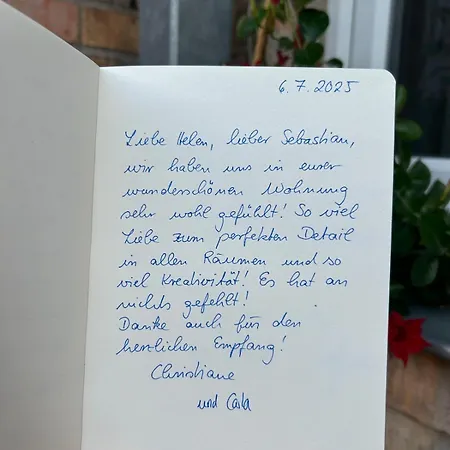 6.7.2025
Liebe Helen, lieber Sebastian,
wir haben uns in eurer
wunderschönen Wohnung
sehr wohl gefühlt! So viel
Liebe zum perfekten Detail
in allen Räumen und so
viel Kreativität! Es hat an
nichts gefehlt!
Danke auch für den
herzlichen Empfang!
Christiane
und Carla